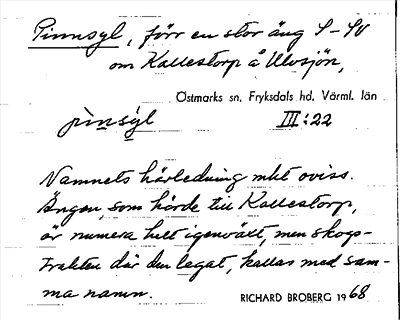 Pinnsyl, förr en stor äng S-SV
om Kallestorp å Ulvsjön,
Östmarks sn, Fryksdals hd, Värml. län
pìnsyl III:22
Namnets härledning mkt oviss.
Ängen, som hörde till Kallestorp,
är numera helt igenväxt, men skogs-
trakten där den legat, kallas med sam-
ma namn.
RICHARD BROBERG 1968